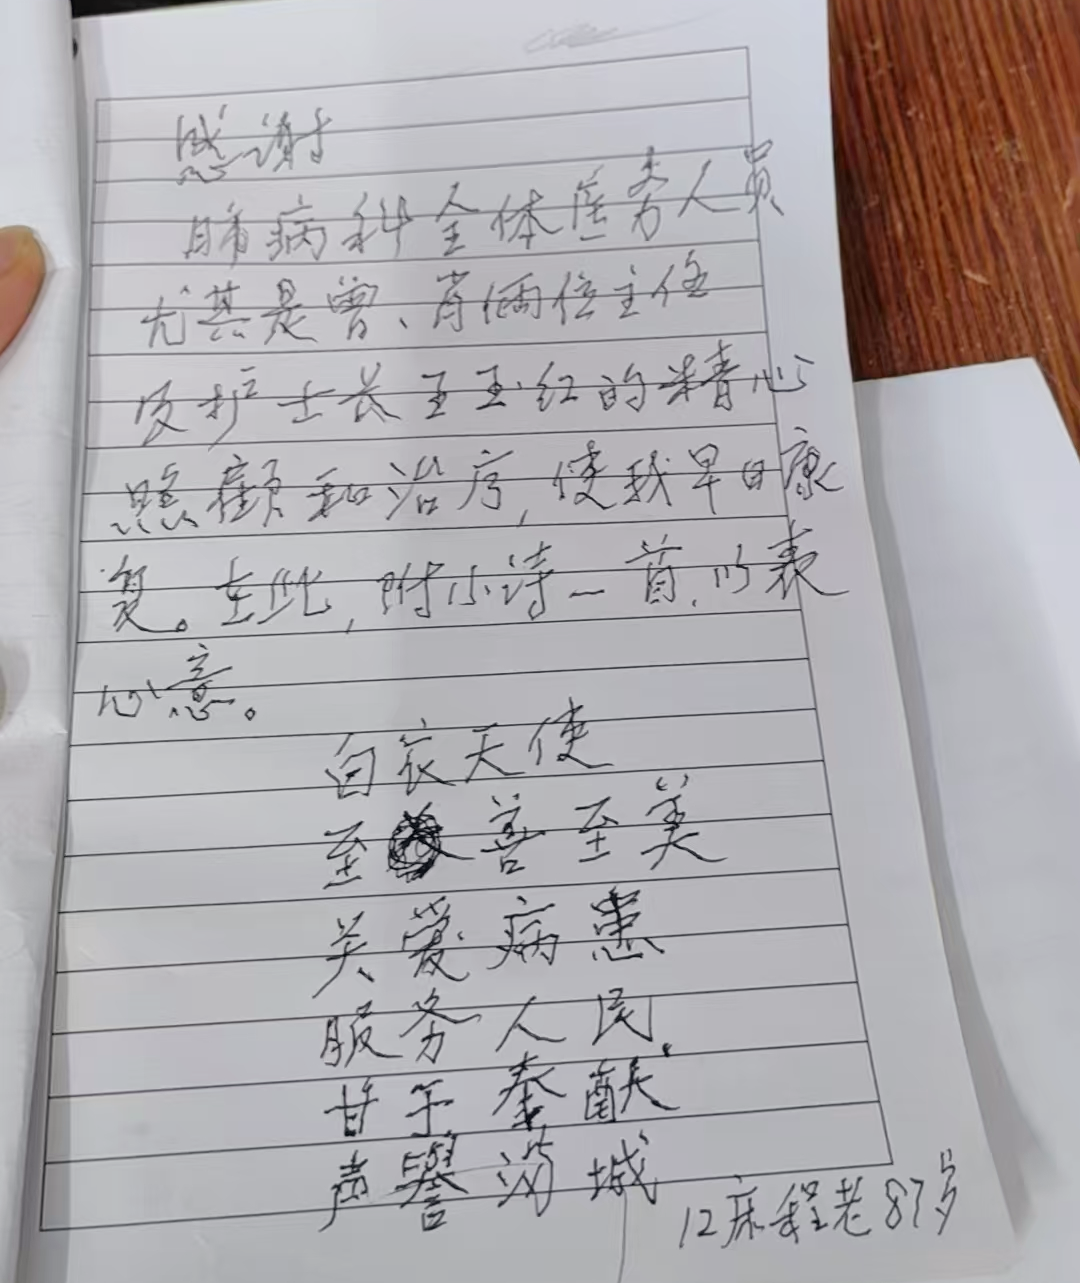 感谢
肺病科全体医务人员
尤其是曾、肖俩位主任
及护士长王玉红的精心
照顾和治疗,使我早日康
复。在此,附小诗一首,以表
心意。
白衣天使
至善至美
关爱病患
服务人民
甘于奉献
声誉满城
12床程老87岁